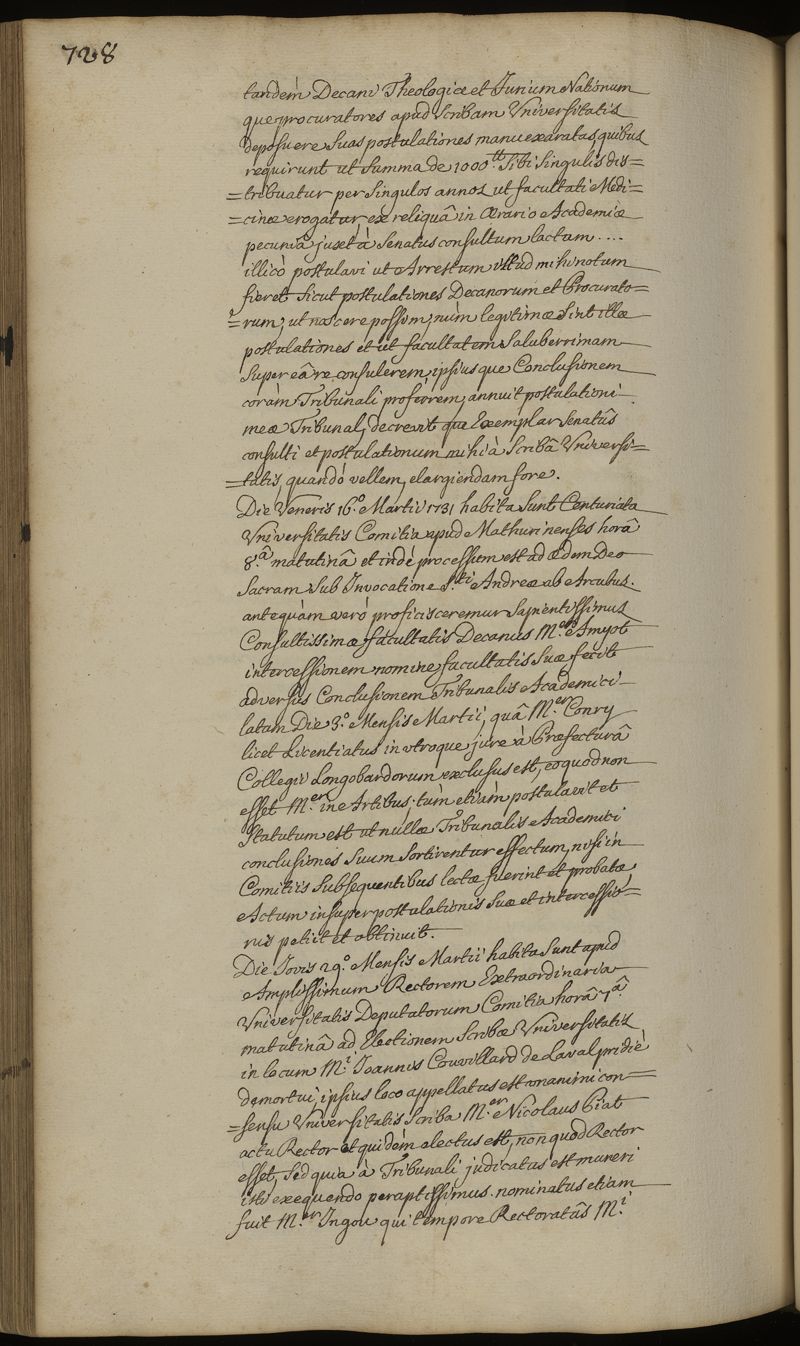 728
tandém Decani Theologiæ et Jurium Nationum
que procuratores apud Scribam Universitatis
deposuere Suas postulationes manu exaratas, quibus
requirunt ut Summa de 1000.tt Sibi Singulis dis=
=tribuatur per Singulos annos ut facultati Medi=
=cinæ erogatur, ex reliquâ in Ærario Academiæ
pecuniâ juxtà Senatus consultum lactum ....
illicò postulavi ut Arrestum illud mihi notum
fieret Sicut postulationes Decanorum et Procurato=
=rum, ut noscere possem, núm legitimæ Sint illæ
postulationes et ut facultatem Saluberrimam
Super eâ re consulerem, ipsiusque Conclusionem
coràm Tribunali proferrem, annuit postulationi
meæ Tribunal, decrevit que Exemplar Senatûs
consulti et postulationum mihi à Scribâ Universi=
=tatis, quandó vellem, elargiendam fore.
Die Veneris 16.° Martii 1731 habita Sunt Centuriata
Universitatis Comitia apud Mathurinenses horâ
8.â matutinâ et indè processum est ad Ædem Deo
Sacram Sub Invocatione S.ti Andreæ ab Arcubus.
antequàm veró proficisceremur Sapientissimus
Consultissimæ facultatis Decanus M.er Amyot
intercessionem nomine facultatis Suæ fecit
adversùs Conclusionem Tribunalis Academici
latam Die 3.° Mensis Martii, quâ M.er Conry
licet Licentiatus in utroque jure à Præfecturâ
Collegii Longobardorum exclusus est, eo quod non
esset M.er in Artibus; tùm etiàm postulavit et
Statutum est ut nullæ Tribunalis Academici
conclusiones Suum Sortirentur effectum, nisi in
Comitiis Subsequentibus lectæ fuerint et probatæ,
Actum insuper postulationis Suæ et intercessio=
nis petiit et obtinuit.
Die Jovis 29.° Mensis Martii habita Sunt apud
Amplissimum Rectorem Extraordinaria
Universitatis Deputatorum Comitia horâ 7.â
matutinâ ad Electionem Scribæ Universitatis
in locum M.i Joannis Couvillard de Laval pridiè
demortui, ipsius loco appellatus est unanimi con=
=sensu Universitatis Scriba M.er Nicolaus Piat
actu Rector et quidèm electus est, non quod Rector
esset, Sed quia à Tribunali judicatus est muneri
isti exequendo peraptissimus. nominatus etiam
fuit M.er Ingou qui tempore Rectoratûs M.i